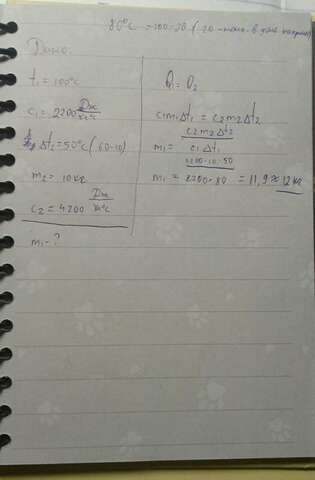 80°C = 100-20 (20 -
Дано:
t₁ = 100°C
c₁ = 2200 Дж/кг°C
Δt₂ = 50°C (60-10)
m₂ = 10 кг
c₂ = 4200 Дж/кг°C
m₁ - ?
Q₁ = Q₂
c₁m₁Δt₁ = c₂m₂Δt₂
m₁ = c₂m₂Δt₂ / c₁Δt₁
m₁ = 4200·10·50 / 2200·80 = 11,9 ≈ 12 кг